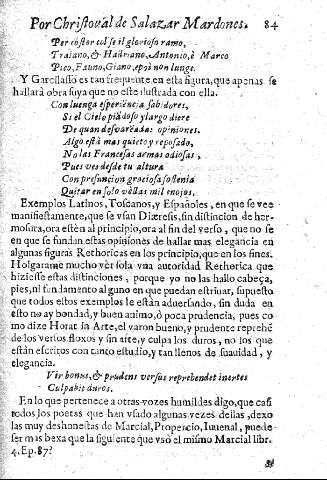 Por Christoual de Salazar Mardones. 84
Per costor col se il glorioso ramo,
Traiano, & Hadriano, Antonio, è Marco
Pico, Fauno, Giano, e poi non lunge.
Y Garcilasso es tan frequente en esta figura, que apenas se
hallarà obra suya que no este ilustrada con ella.
Con luenga esperiēcia sabidores,
Si el Cielo piadoso y largo diere
De quan desuariadas opiniones.
Algo està mas quieto y reposado,
No las Francesas armas odiosas,
Pues ves desde tu altura
Con presuncion graciosa sostenia
Quitar en solo vellas mil enojos.
Exemplos Latinos, Toscanos, y Españoles, en que se vee
manifiestamente, que se vsan Diæresis, sin distincion de her-
mosura, ora estèn al principio, ora al fin del verso, que no se
en que se fundan estas opiniones de hallar mas elegancia en
algunas figuras Rethoricas en los principio, que en los fines.
Holgarame mucho ver sola vna autoridad Rethorica que
hiziesse estas distinciones, porque yo no las hallo cabeça,
pies, ni fundamento alguno en que puedan estriuar, supuesto
que todos estos exemplos le estàn aduersando, sin duda en
esto no ay bondad, y buen animo, ò poca prudencia, pues co
mo dize Horat in Arte, el varon bueno, y prudente reprehē
de los versos floxos y sin arte, y culpa los duros, no los que
están escritos con tanto estudio, y tan llenos de suauidad, y
elegancia.
Vir bonus, & prudens versus reprehendet inertes
Culpabit duros.
En lo que pertenece a otras vozes humildes digo, que casi
todos los poetas que han vsado algunas vezes dellas, dexo
las muy deshonestas de Marcial, Propercio, Iuuenal, puede
ser mas bexa que la siguiente que vsò el mismo Marcial libr.
4. Ep. 87?